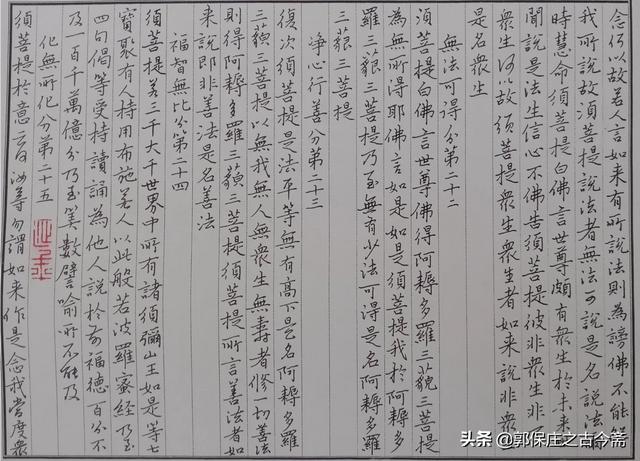 念何以故若人言如来有所說法則為謗佛不能解
我所說故須菩提說法者無法可說是名說法爾
時慧命須菩提白佛言世尊頗有衆生於未来世
聞說是法生信心不佛告須菩提彼非衆生非不
衆生何以故須菩提衆生衆生者如来說非衆生
是名衆生
無法可得分第二十二
須菩提白佛言世尊佛得阿耨多羅三藐三菩提
為無所得耶佛言如是如是須菩提我於阿耨多
羅三藐三菩提乃至無有少法可得是名阿耨多羅
三藐三菩提
淨心行善分第二十三
復次須菩提是法平等無有高下是名阿耨多羅
三藐三菩提以無我無人無衆生無壽者修一切善法
則得阿耨多羅三藐三菩提須菩提所言善法者如
来說即非善法是名善法
福智無比分第二十四
須菩提若三千大千世界中所有諸須彌山王如是等七
寶聚有人持用布施若人以此般若波羅蜜經乃至
四句偈等受持讀誦為他人說於前福德百分不
及一百千萬億分乃至算數譬喻所不能及
化無所化分第二十五
須菩提於意云何汝等勿謂如来作是念我當度衆
头条 @郭保庄之古今斋